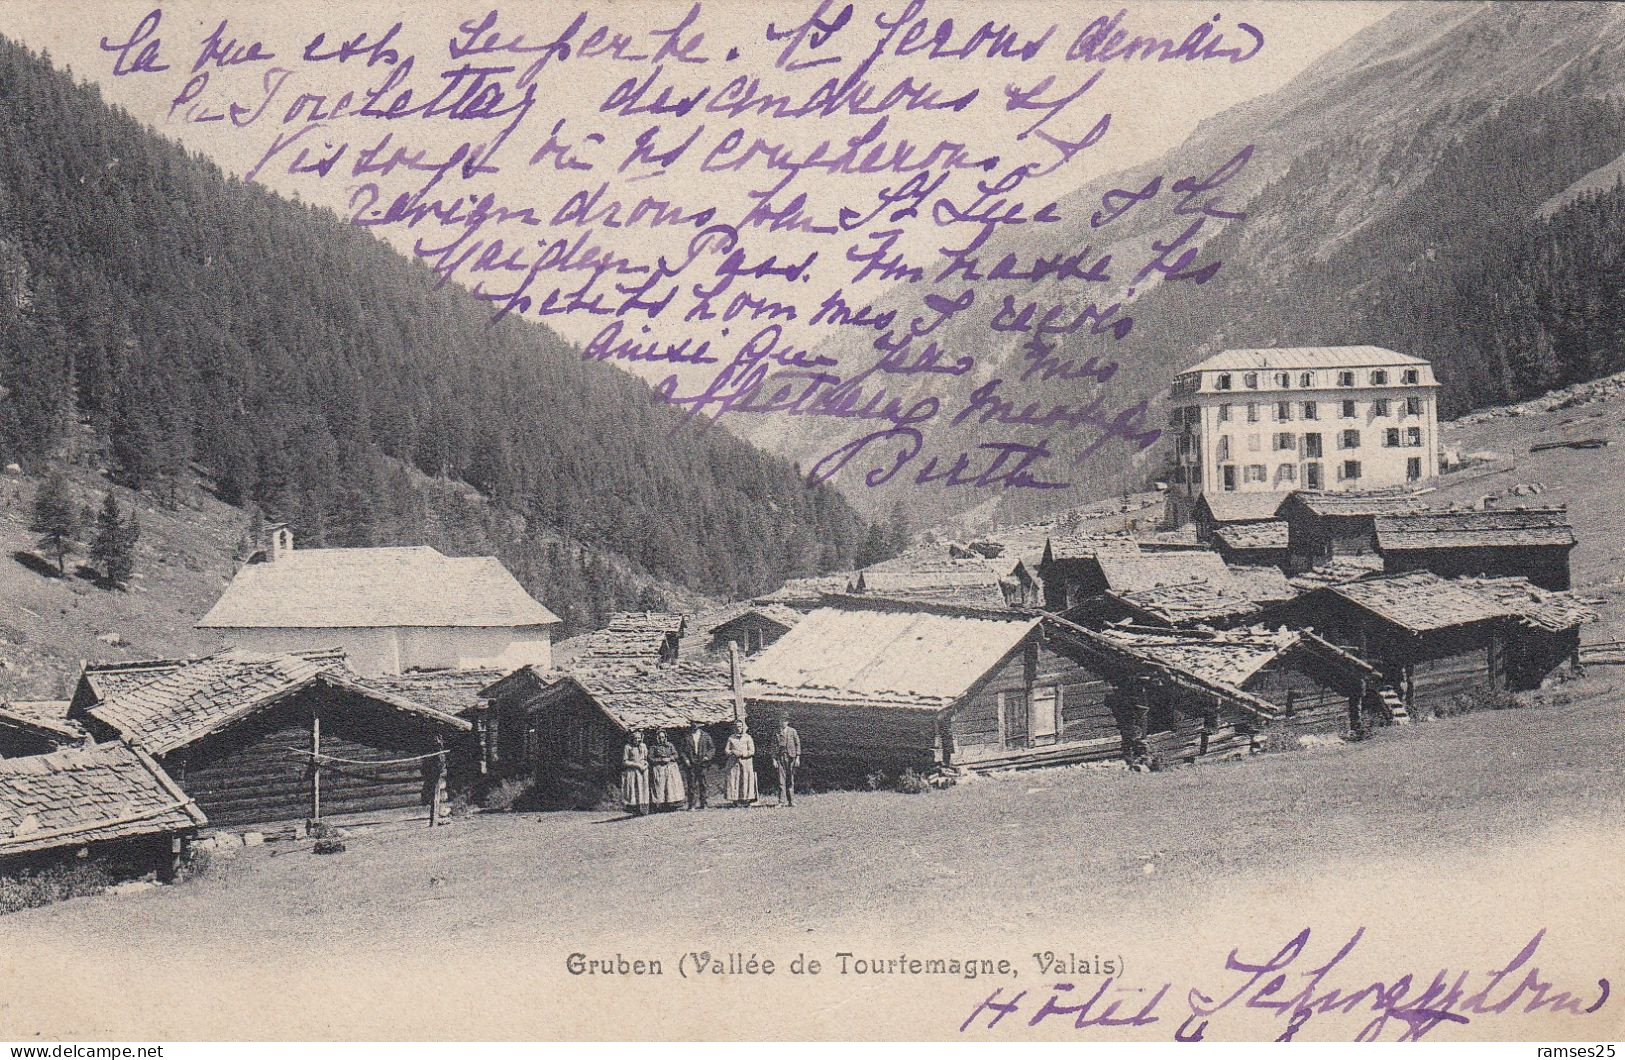 la vue est superbe. Ns ferons demain
la Forclettaz, descendrons à
Vissoye où ns coucherons &
reviendrons par St Luc & le
Meiden Pass. Embrasse les
petits hommes & reçois
ainsi que papa mes
affectueux messages
Berthe
Gruben (Vallée de Tourtemagne, Valais)
Hôtel Schwarzhorn
ramses25